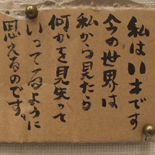 私はいま
今の世界は
私から見たら
何かを見失って
いってるように
思えるのです。